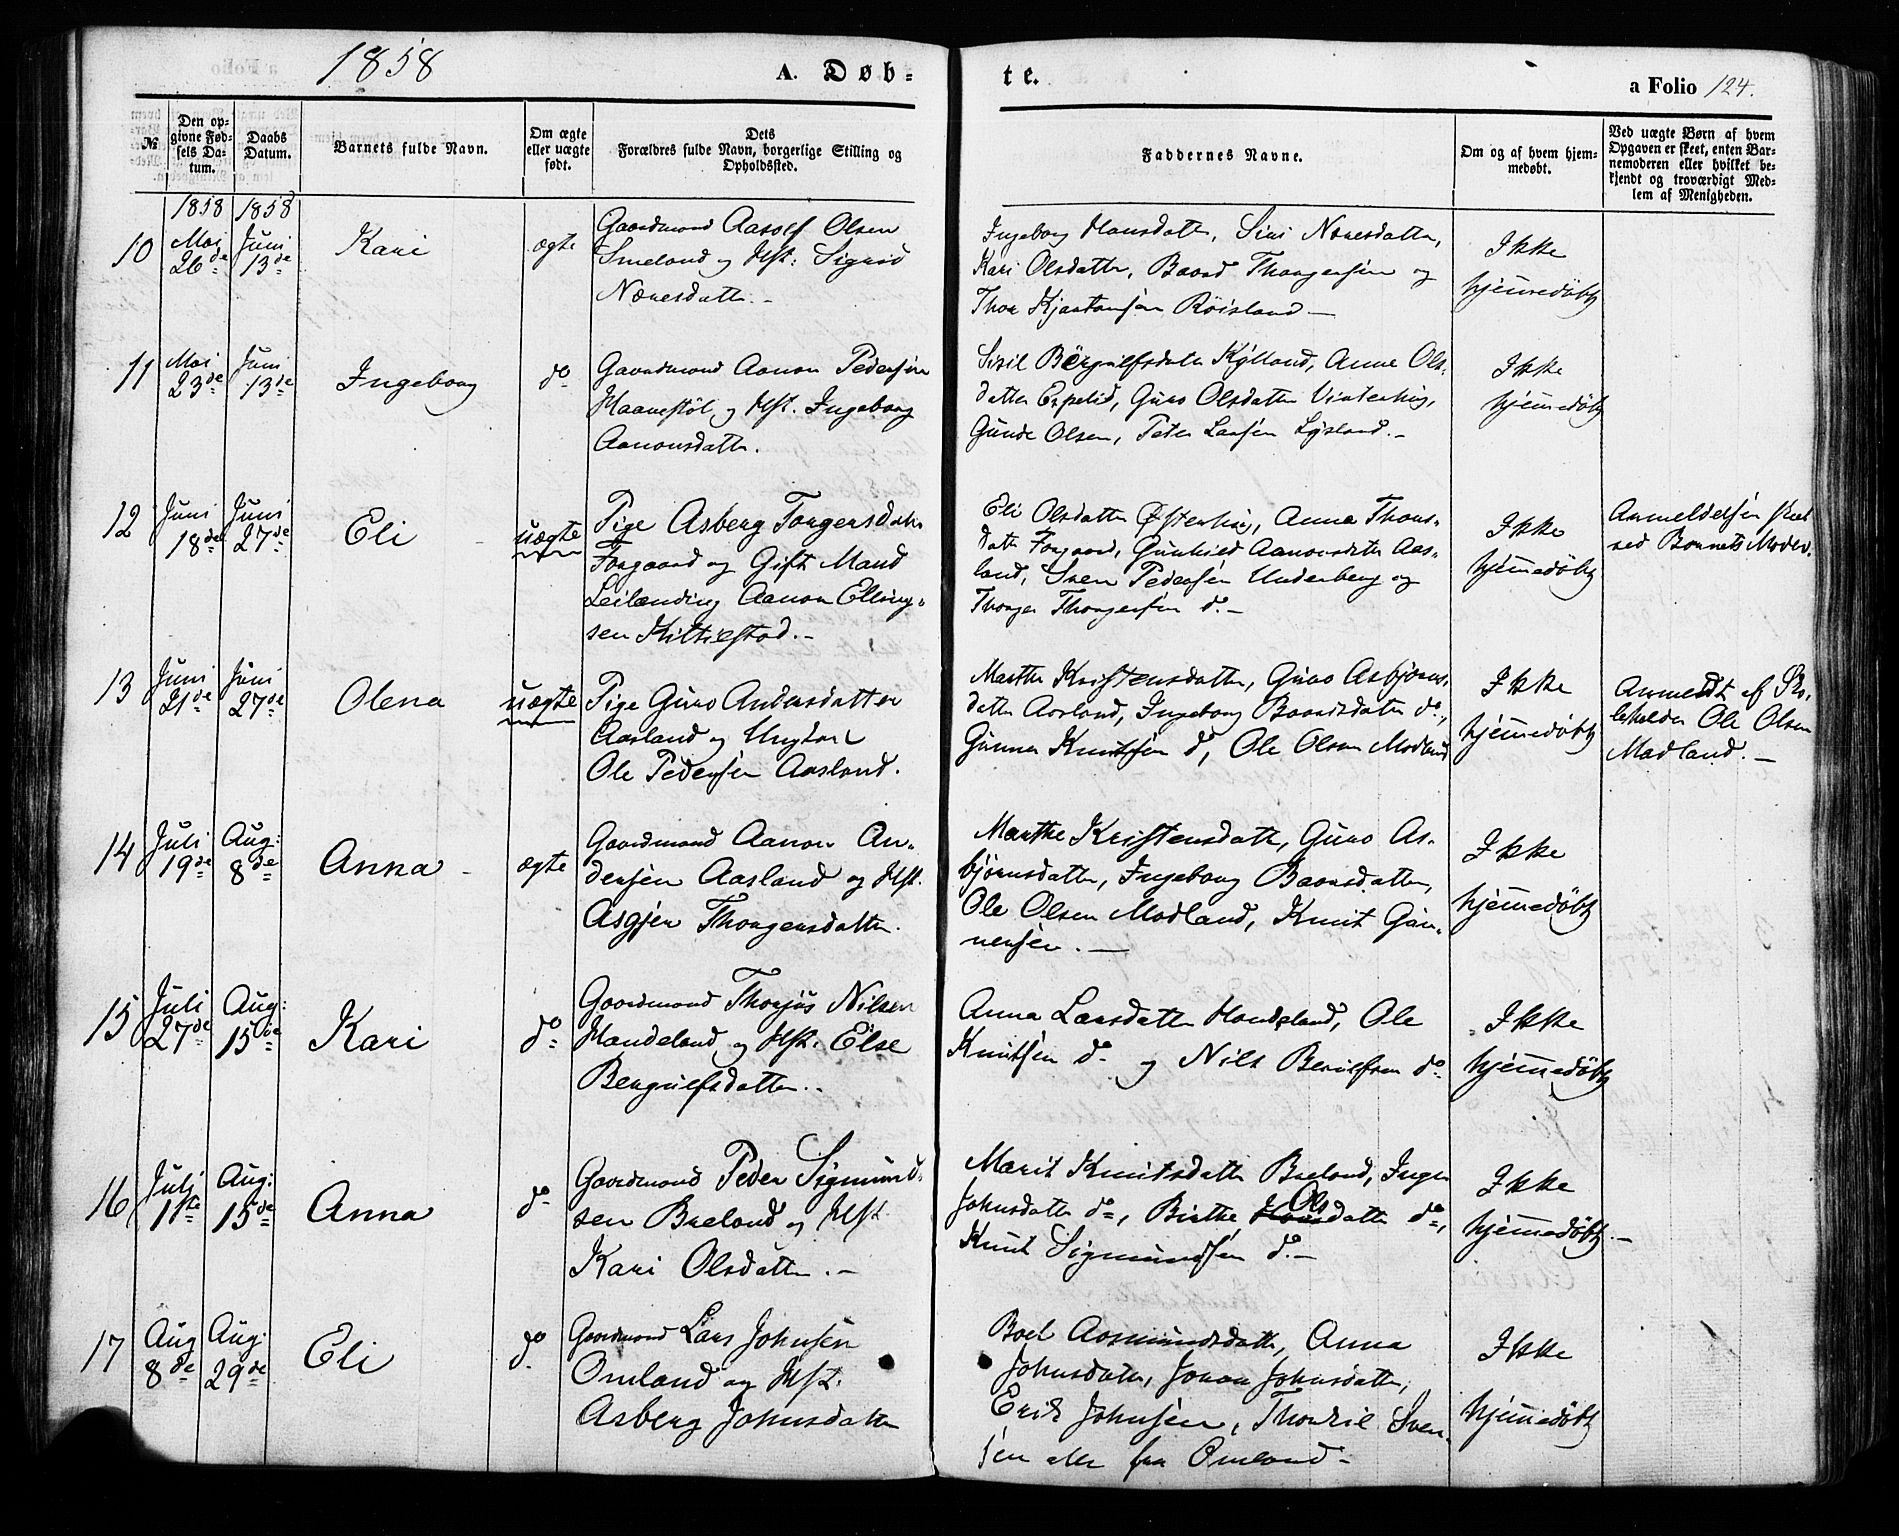 1858
A. Døb-
te.
a Folio 124.
№
Den op-
givne Fød-
sels Da-
tum.
Daabs
Datum.
Barnets fulde Navn.
Om ægte
eller uægte
født.
Dets
Forældres fulde Navn, borgerlige Stilling og
Opholdssted.
Faddernes Navne.
Om og af hvem hjem-
medøbt.
Ved uægte Børn af hvem
Opgaven er skeet, enten Bar-
nemoderen eller hvilket be-
kjendt og troværdigt Med-
lem af Menigheden.
1858 1858
10
Mai
26de
Juni
13de
Kari
ægte
Gaardmand Aasolf Olsen
Smeland og Hst: Sigrid
Næresdatter.-
Ingeborg Hansdatter, Siri Næresdatter,
Kari Olsdatter, Baard Thorgersen og
Thor Kjæstansen Røisland.-
Ikke
hjemmedøbt
11
Mai
23de
Juni
13de
Ingeborg
do
Gaardmand Aanon Pedersen
Haanestöl, og Hst. Ingeborg
Aanonsdatter.
Siril Börgulfsdatter Kÿlland, Anne Ols-
datter Espelid, Guro Olsdatter Vinterhug,
Gunde Olsen, Peter Larsen Lÿsland.-
Ikke
hjemmedøbt
12
Juni
18de
Juni
27de
Eli
uægte
Pige Asberg Torgersdatter
Torgaard og Gift Mand
Leilænding Aanon Elling-
sen Kittilstad.-
Eli Olsdatter Østerhug, Anna Thors-
datter Torgaard, Gunhild Aanonsdatter Aas-
land, Sven Pedersen Underberg og
Thorger Thorgersen do.-
Ikke
hjemmedøbt
Anmeldelsen skeet
ved Barnets Moder.
13
Juni
21de
Juni
27de
Olena
uægte
Pige Guro Andersdatter
Aasland og Ungkarl
Ole Pedersen Aasland.
Marthe Kristensdatter, Guro Asbjørns-
datter Aasland, Ingeborg Baardsdatter do,
Gunner Knutsen do, Ole Olsen Modland
Ikke
hjemmedøbt
Anmeldt af Sko-
leholder Ole Olsen
Madland.-
14
Juli
19de
Aug:
8de
Anna
ægte
Gaardmand Aanon An-
dersen Aasland og Hst.
Asgjer Thorgersdatter.
Marthe Kristensdatter, Guro As-
bjørnsdatter, Ingeborg Baarsdatter,
Ole Olsen Modland, Knut Gun-
nersen.-
Ikke
hjemmedøbt
15
Juli
27de
Aug:
15de
Kari
do
Gaardmand Thorjus Nilsen
Handeland og Hst. Else
Bergulfsdatter.-
Anna Larsdatter Handeland, Ole
Knutsen do og Nils Berulfsen do
Ikke
hjemmedøbt
16
Juli
11te
Aug:
15de
Anna
do
Gaardmand Peder Sigmund-
sen Breland og Hst.
Kari Olsdatter.-
Marit Knutsdatter Breland, Inger
Johnsdatter do, Birthe Olsdatter do,
Knut Sigmundsen do.-
Ikke
hjemmedøbt.-
17
Aug
8de
Aug:
29de
Eli
do
Gaardmand Lars Johnsen
Omland og Hst.
Asberg Johnsdatter
Boel Aasmundsdatter, Anna
Johnsdatter, Joran Johnsdatter,
Erik Johnsen, Thorkil Sven-
sen alle fra Omland-
Ikke
hjemmedøbt